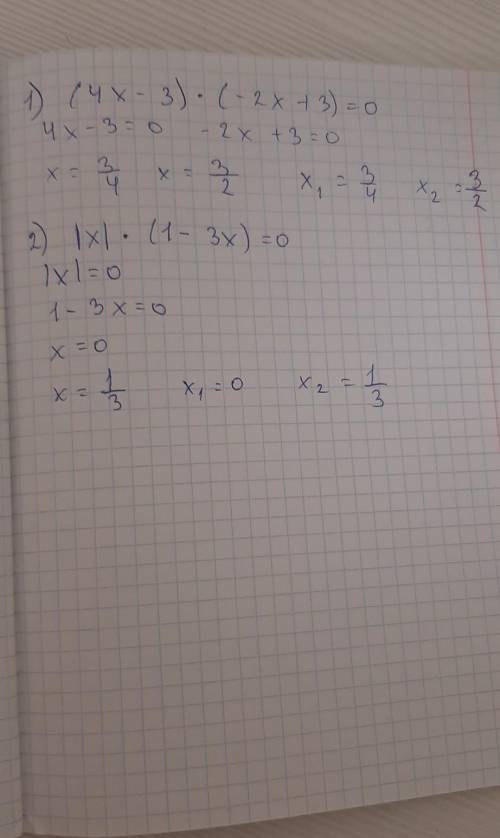 1) (4x - 3) · (-2x + 3) = 0
4x - 3 = 0 -2x + 3 = 0
x = 3/4 x = 3/2 x₁ = 3/4 x₂ = 3/2
2) |x| · (1 - 3x) = 0
|x| = 0
1 - 3x = 0
x = 0
x = 1/3 x₁ = 0 x₂ = 1/3